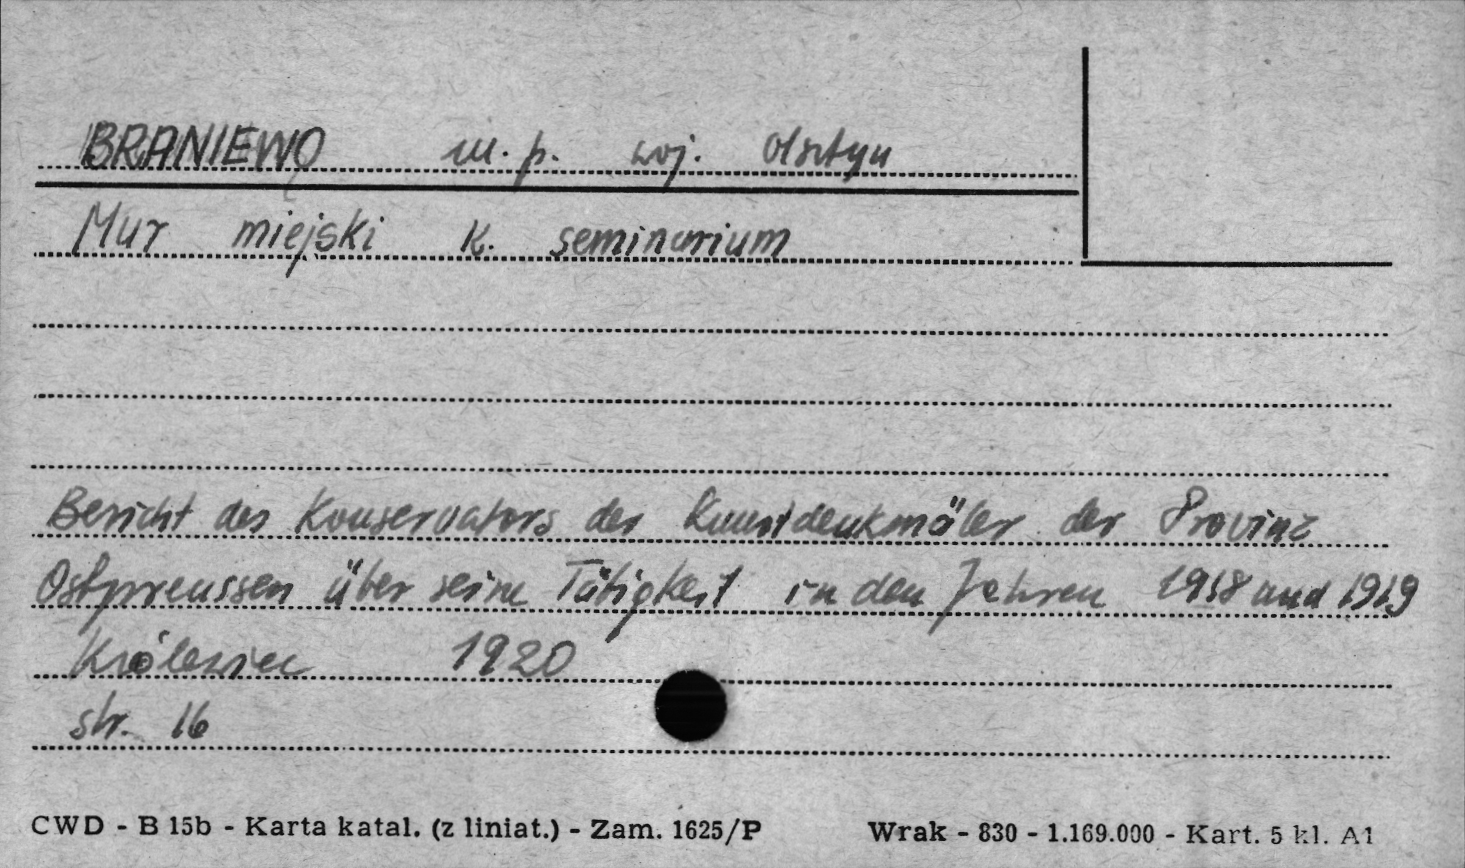 BRANIEWO m. p. woj. Olsztyn
Mur miejski k. seminarium
Bericht des Konservators der Kunstdenkmäler der Provinz
Ostpreussen über seine Tätigkeit in den Jahren 1918 und 1919
Królewiec 1920
str. 16
CWD - B 15b - Karta katal. (z liniat.) - Zam. 1625/P Wrak - 830 - 1.169.000 - Kart. 5 kl. A1